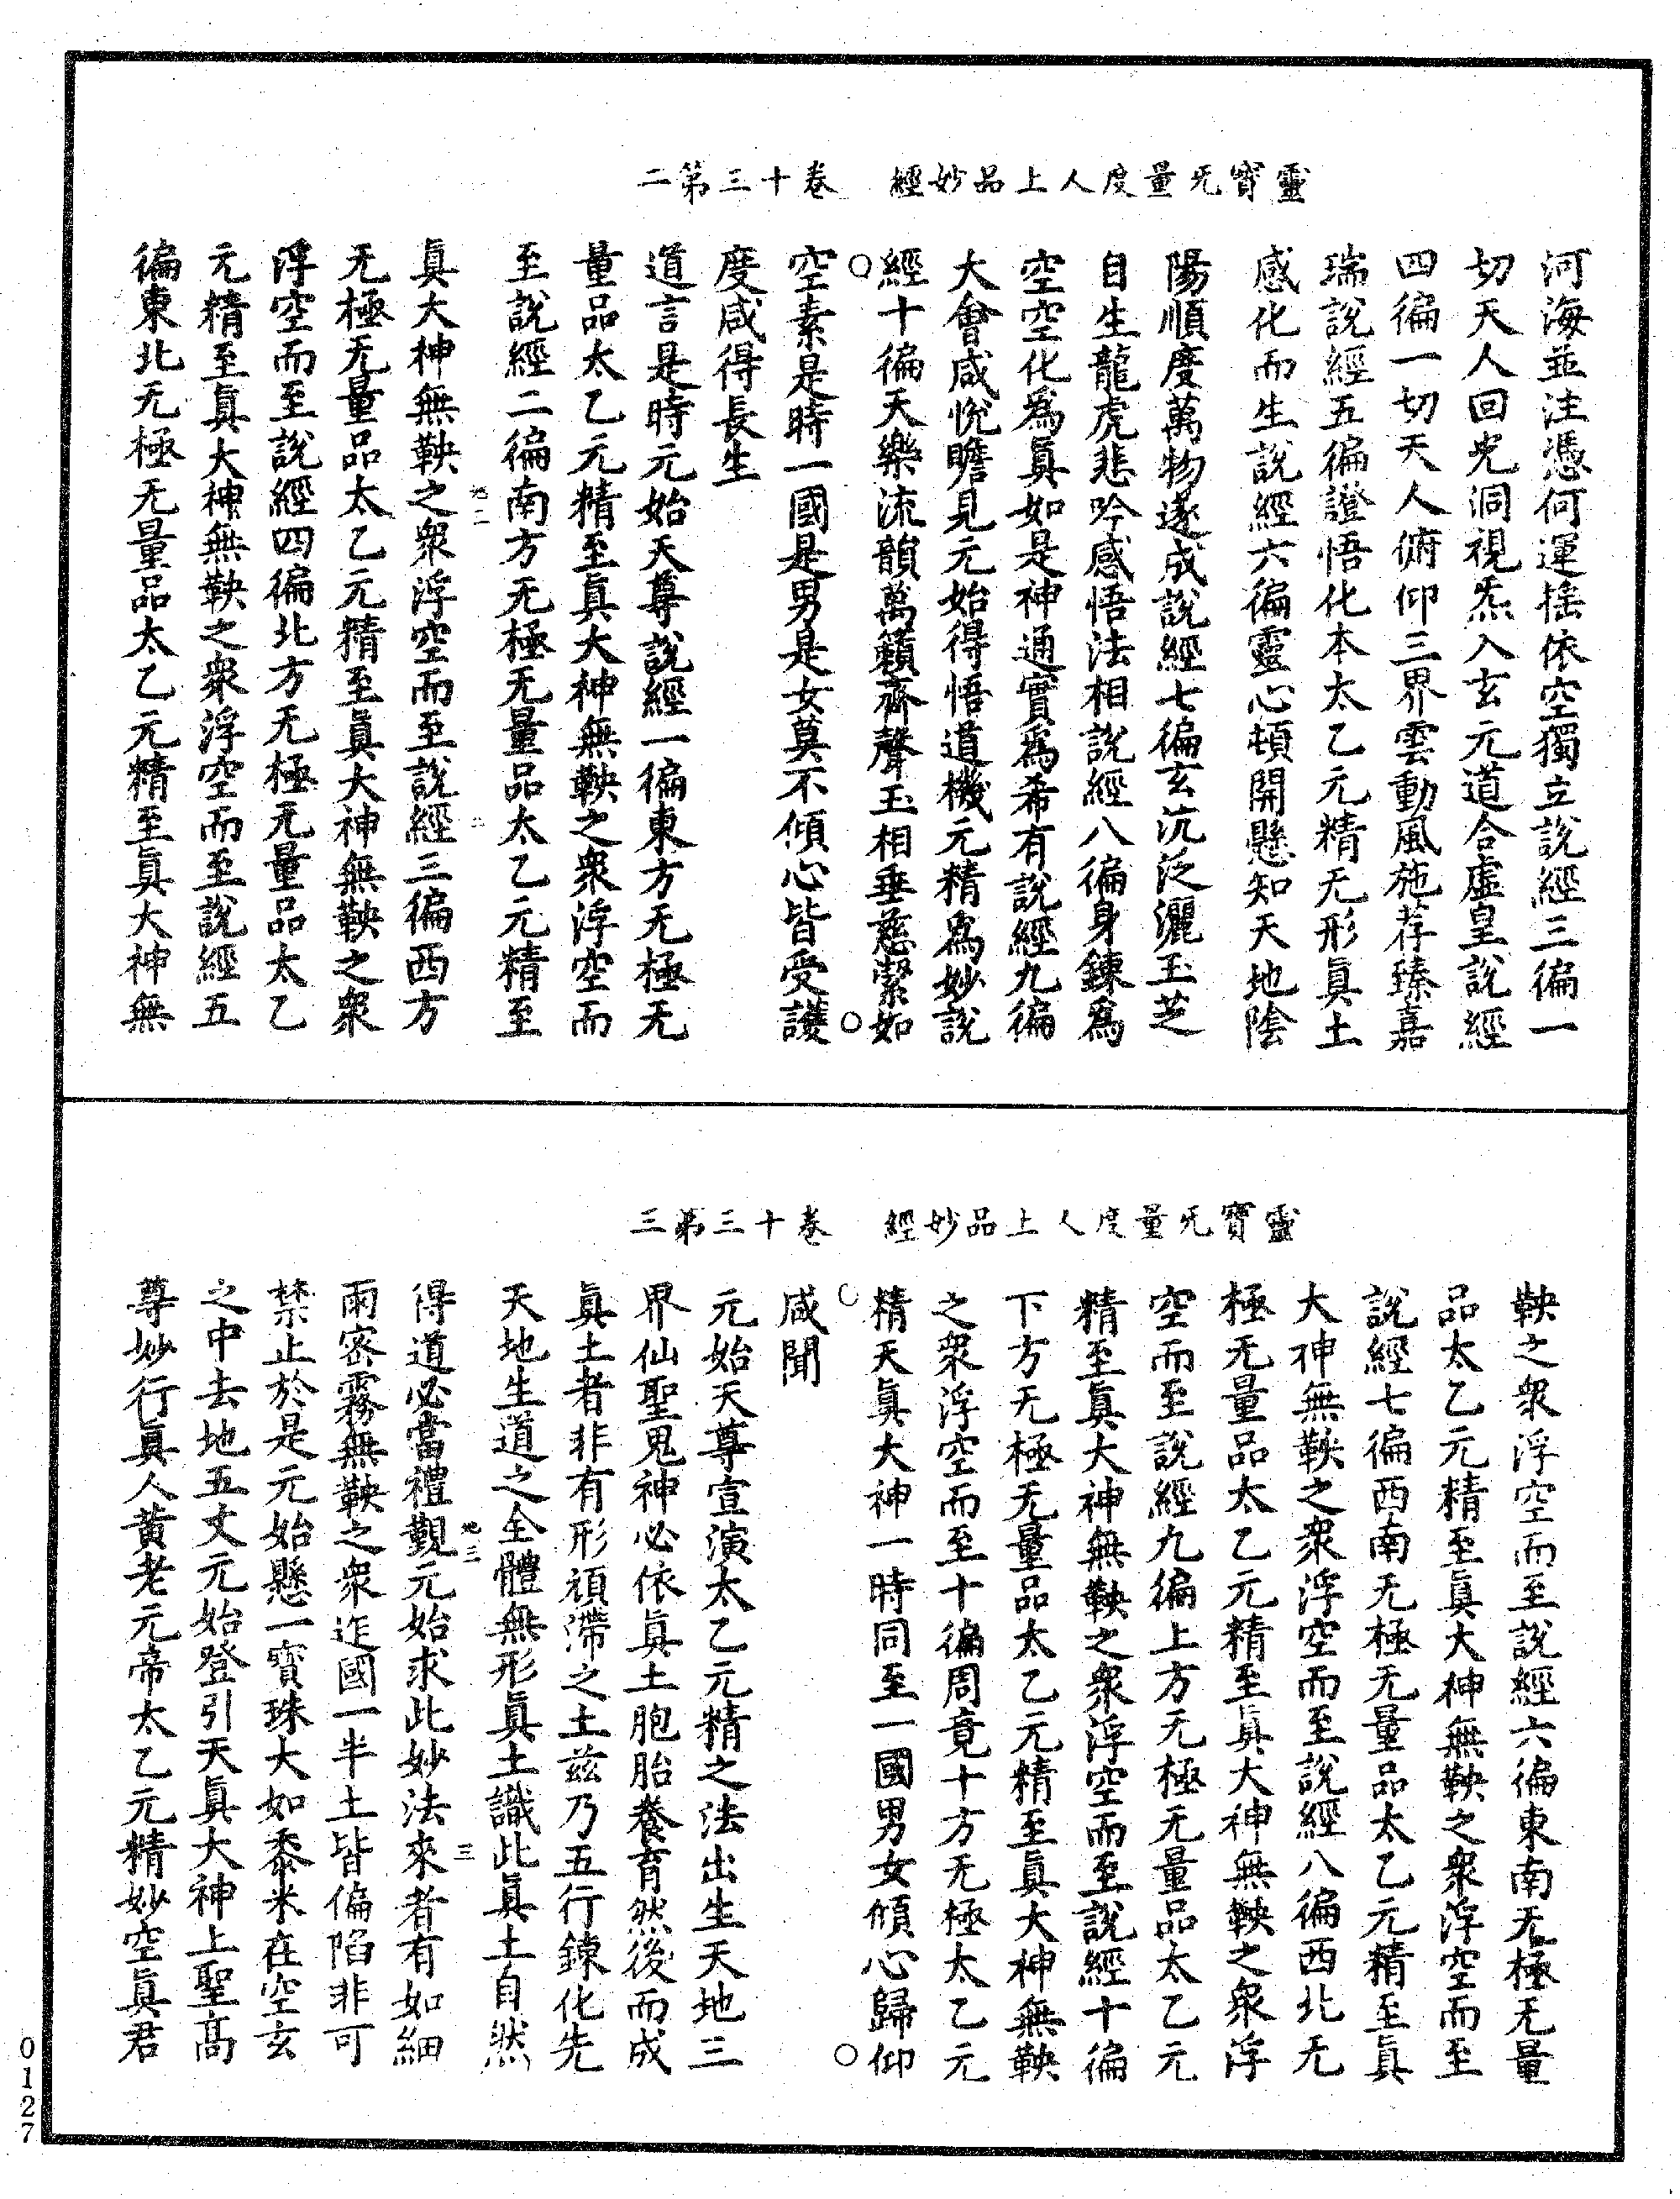 靈寶无量度人上品妙經　卷十三第二
河海並注憑何運搖依空獨立說經三徧一
切天人回光洞視炁入玄元道合虛皇說經
四徧一切天人俯仰三界雲動風施荐臻嘉
瑞說經五徧證悟化本太乙元精无形眞土
感化而生說經六徧靈心頓開懸知天地陰
陽順度萬物遂成說經七徧玄沉泛灑玉芝
自生龍虎悲吟感悟法相說經八徧身鍊爲
空空化爲眞如是神通實爲希有說經九徧
大會咸悅瞻見元始得悟道機元精爲妙說
經十徧天樂流韻萬籟齊聲玉相垂慈潔如
空素是時一國是男是女莫不傾心皆受護
度咸得長生
道言是時元始天尊說經一徧東方无極无
量品太乙元精至眞大神無鞅之衆浮空而
至說經二徧南方无極无量品太乙元精至
地二　二
眞大神無鞅之衆浮空而至說經三徧西方
无極无量品太乙元精至眞大神無鞅之衆
浮空而至說經四徧北方无極无量品太乙
元精至眞大神無鞅之衆浮空而至說經五
徧東北无極无量品太乙元精至眞大神無
靈寶无量度人上品妙經　卷十三第三
鞅之衆浮空而至說經六徧東南无極无量
品太乙元精至眞大神無鞅之衆浮空而至
說經七徧西南无極无量品太乙元精至眞
大神無鞅之衆浮空而至說經八徧西北无
極无量品太乙元精至眞大神無鞅之衆浮
空而至說經九徧上方无極无量品太乙元
精至眞大神無鞅之衆浮空而至說經十徧
下方无極无量品太乙元精至眞大神無鞅
之衆浮空而至十徧周竟十方无極太乙元
精天眞大神一時同至一國男女傾心歸仰
咸聞
元始天尊宣演太乙元精之法出生天地三
界仙聖鬼神必依眞土胞胎養育然後而成
眞土者非有形頑滯之土茲乃五行鍊化先
天地生道之全體無形眞土識此眞土自然
地三　三
得道必當禮覲元始求此妙法來者有如細
雨密霧無鞅之衆迮國一半土皆偏陷非可
禁止於是元始懸一寶珠大如黍米在空玄
之中去地五丈元始登引天眞大神上聖高
尊妙行眞人黃老元帝太乙元精妙空眞君
0127